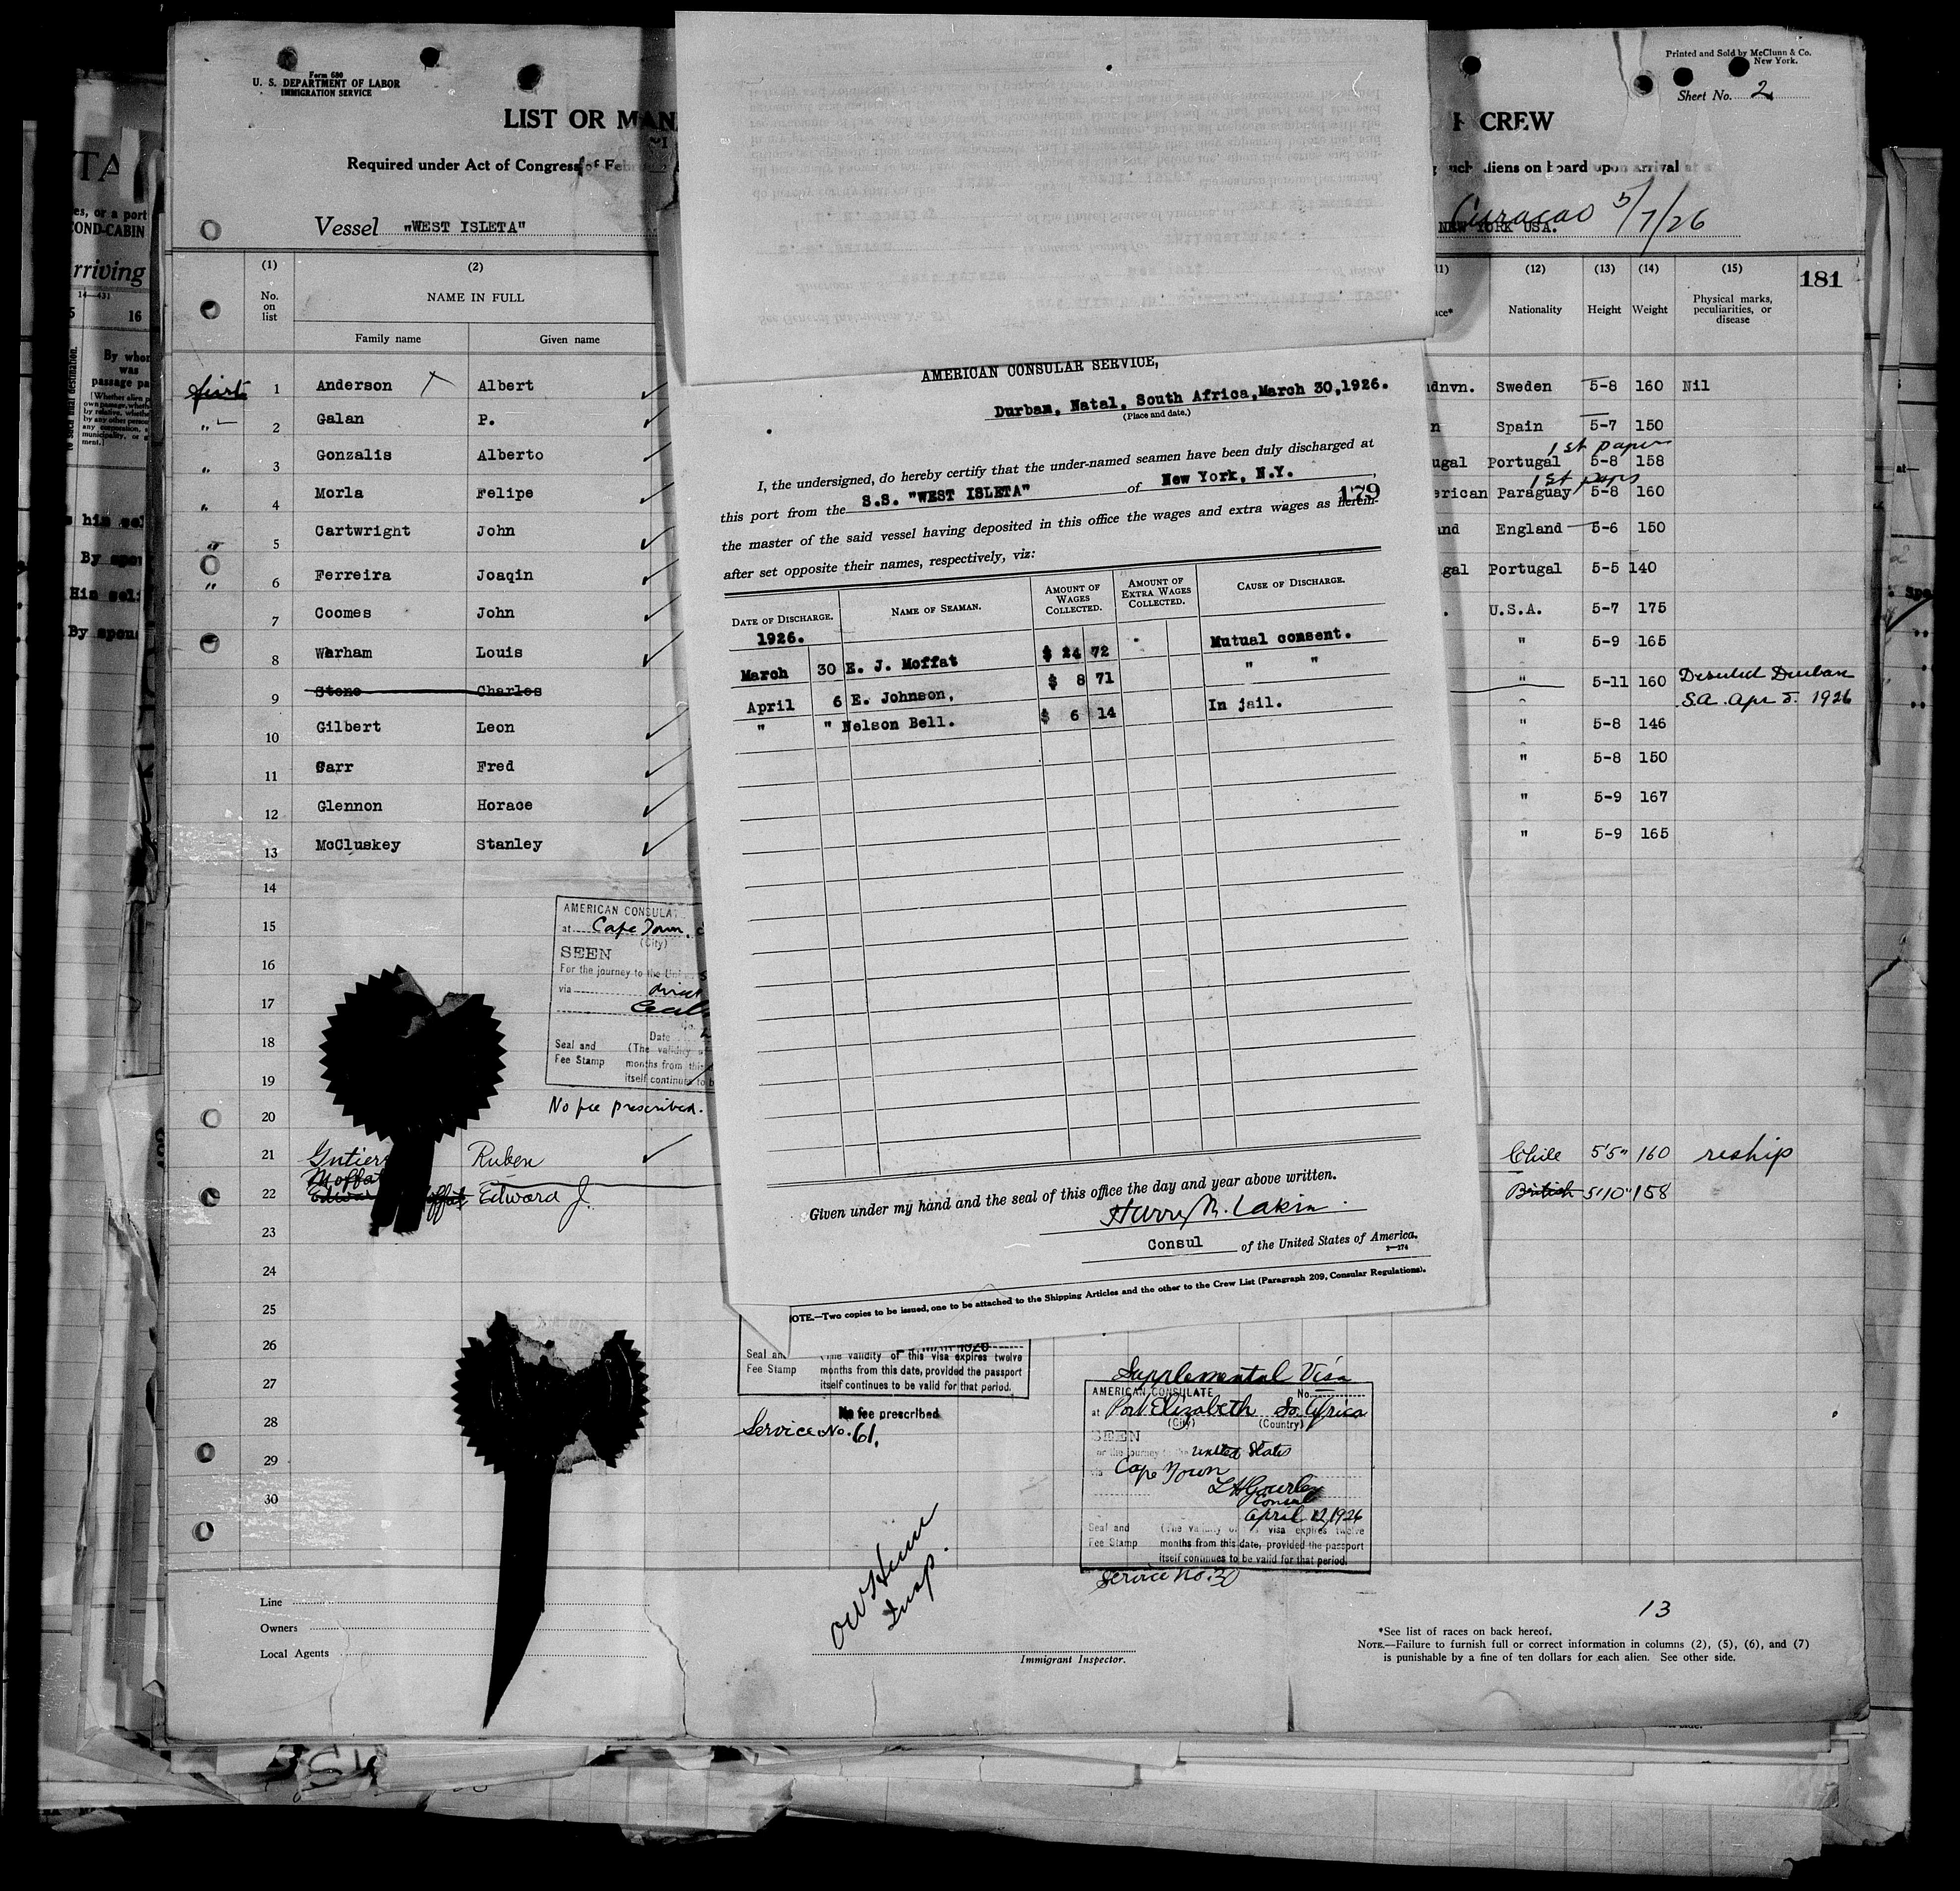 Form 680
U. S. DEPARTMENT OF LABOR
IMMIGRATION SERVICE
Printed and Sold by McClunn & Co.
New York.
Sheet No. 2
LIST OR MAN
F CREW
Required under Act of Congress of Feb
such aliens on board upon arrival at
Vessel "WEST ISLETA"
NEW YORK USA.
Curacao 5/7/26
181
(1) (2)
No. on list
NAME IN FULL
Family name Given name
(12) (13) (14) (15)
Nationality Height Weight Physical marks, peculiarities, or disease
first 1 Anderson Albert ndnvn. Sweden 5-8 160 Nil
" 2 Galan P. n Spain 5-7 150
1st paper
" 3 Gonzalis Alberto ugal Portugal 5-8 158
1st papr
" 4 Morla Felipe erican Paraguay 5-8 160
" 5 Cartwright John and England 5-6 150
" 6 Ferreira Joaqin gal Portugal 5-5 140
7 Coomes John . U.S.A. 5-7 175
8 Warham Louis " 5-9 165
9 Stone Charles " 5-11 160 Deserted Durban
S.A. Apr 5. 1926
10 Gilbert Leon " 5-8 146
11 Carr Fred " 5-8 150
12 Glennon Horace " 5-9 167
13 McCluskey Stanley " 5-9 165
14
15
16
17
18
19
20
21 Gutier Ruben Chile 5'5" 160 reship
Moffat
22 Edwar offat Edward J. British 5'10" 158
23
24
25
26
27
28
29
30
AMERICAN CONSULAT
at Cape Town.
(City)
SEEN
For the journey to the Uni
via direct
Date
Seal and (The validity of
Fee Stamp months from this
itself continues to b
No fee prescribed.
AMERICAN CONSULAR SERVICE,
Durban, Natal, South Africa, March 30, 1926.
(Place and date.)
I, the undersigned, do hereby certify that the under-named seamen have been duly discharged at
this port from the S.S. "WEST ISLETA" of New York, N.Y.,
179
the master of the said vessel having deposited in this office the wages and extra wages as herein-
after set opposite their names, respectively, viz:
DATE OF DISCHARGE. NAME OF SEAMAN. AMOUNT OF WAGES COLLECTED. AMOUNT OF EXTRA WAGES COLLECTED. CAUSE OF DISCHARGE.
1926.
March 30 E. J. Moffat $ 24 72 Mutual consent.
April 6 E. Johnson, $ 8 71 " "
" " Nelson Bell. $ 6 14 In jail.
Given under my hand and the seal of this office the day and year above written.
Harry M. Lakin
Consul of the United States of America.
2—174
OTE.—Two copies to be issued, one to be attached to the Shipping Articles and the other to the Crew List (Paragraph 209, Consular Regulations).
Seal an (The validity of this visa expires twelve
Fee Stamp months from this date, provided the passport
itself continues to be valid for that period.
No fee prescribed
Service No. 61.
Supplemental Visa
AMERICAN CONSULATE No.
at Port Elizabeth So. Africa
(City) (Country)
SEEN
or the journey to the United States
via Cape Town
Consul
April 12, 1926
Seal and (The validity of visa expires twelve
Fee Stamp months from this date, provided the passport
itself continues to be valid for that period.
Service No. 30
Insp.
Immigrant Inspector.
Line
Owners
Local Agents
13
*See list of races on back hereof.
NOTE.—Failure to furnish full or correct information in columns (2), (5), (6), and (7)
is punishable by a fine of ten dollars for each alien. See other side.
TA
es, or a port
COND-CABIN
rriving
14—431
16
By whom
was
passage pa
By spou
His self
By spous